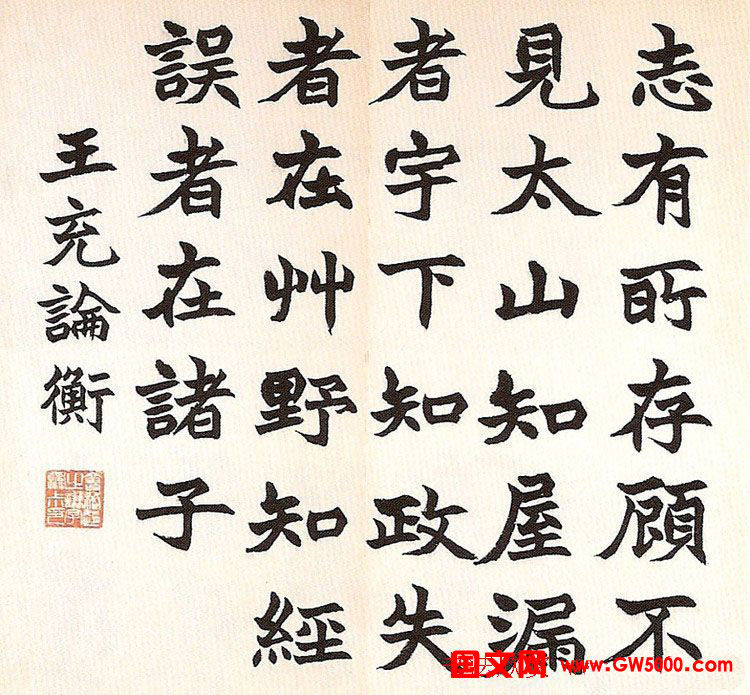 志有所存顧不
見太山知屋漏
者宇下知政失
者在艸野知經
誤者在諸子
王充論衡
国文网 www.GW5000.com